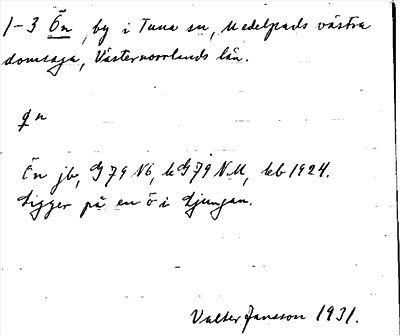 1-3 Ön, by i Tuna sn, Medelpads västra
domsaga, Västernorrlands län.
ǫn
Ön jb, G 79 N6, k G 79 N U, kb 1924.
Ligger på en ö i Ljungan.
Valter Jansson 1931.